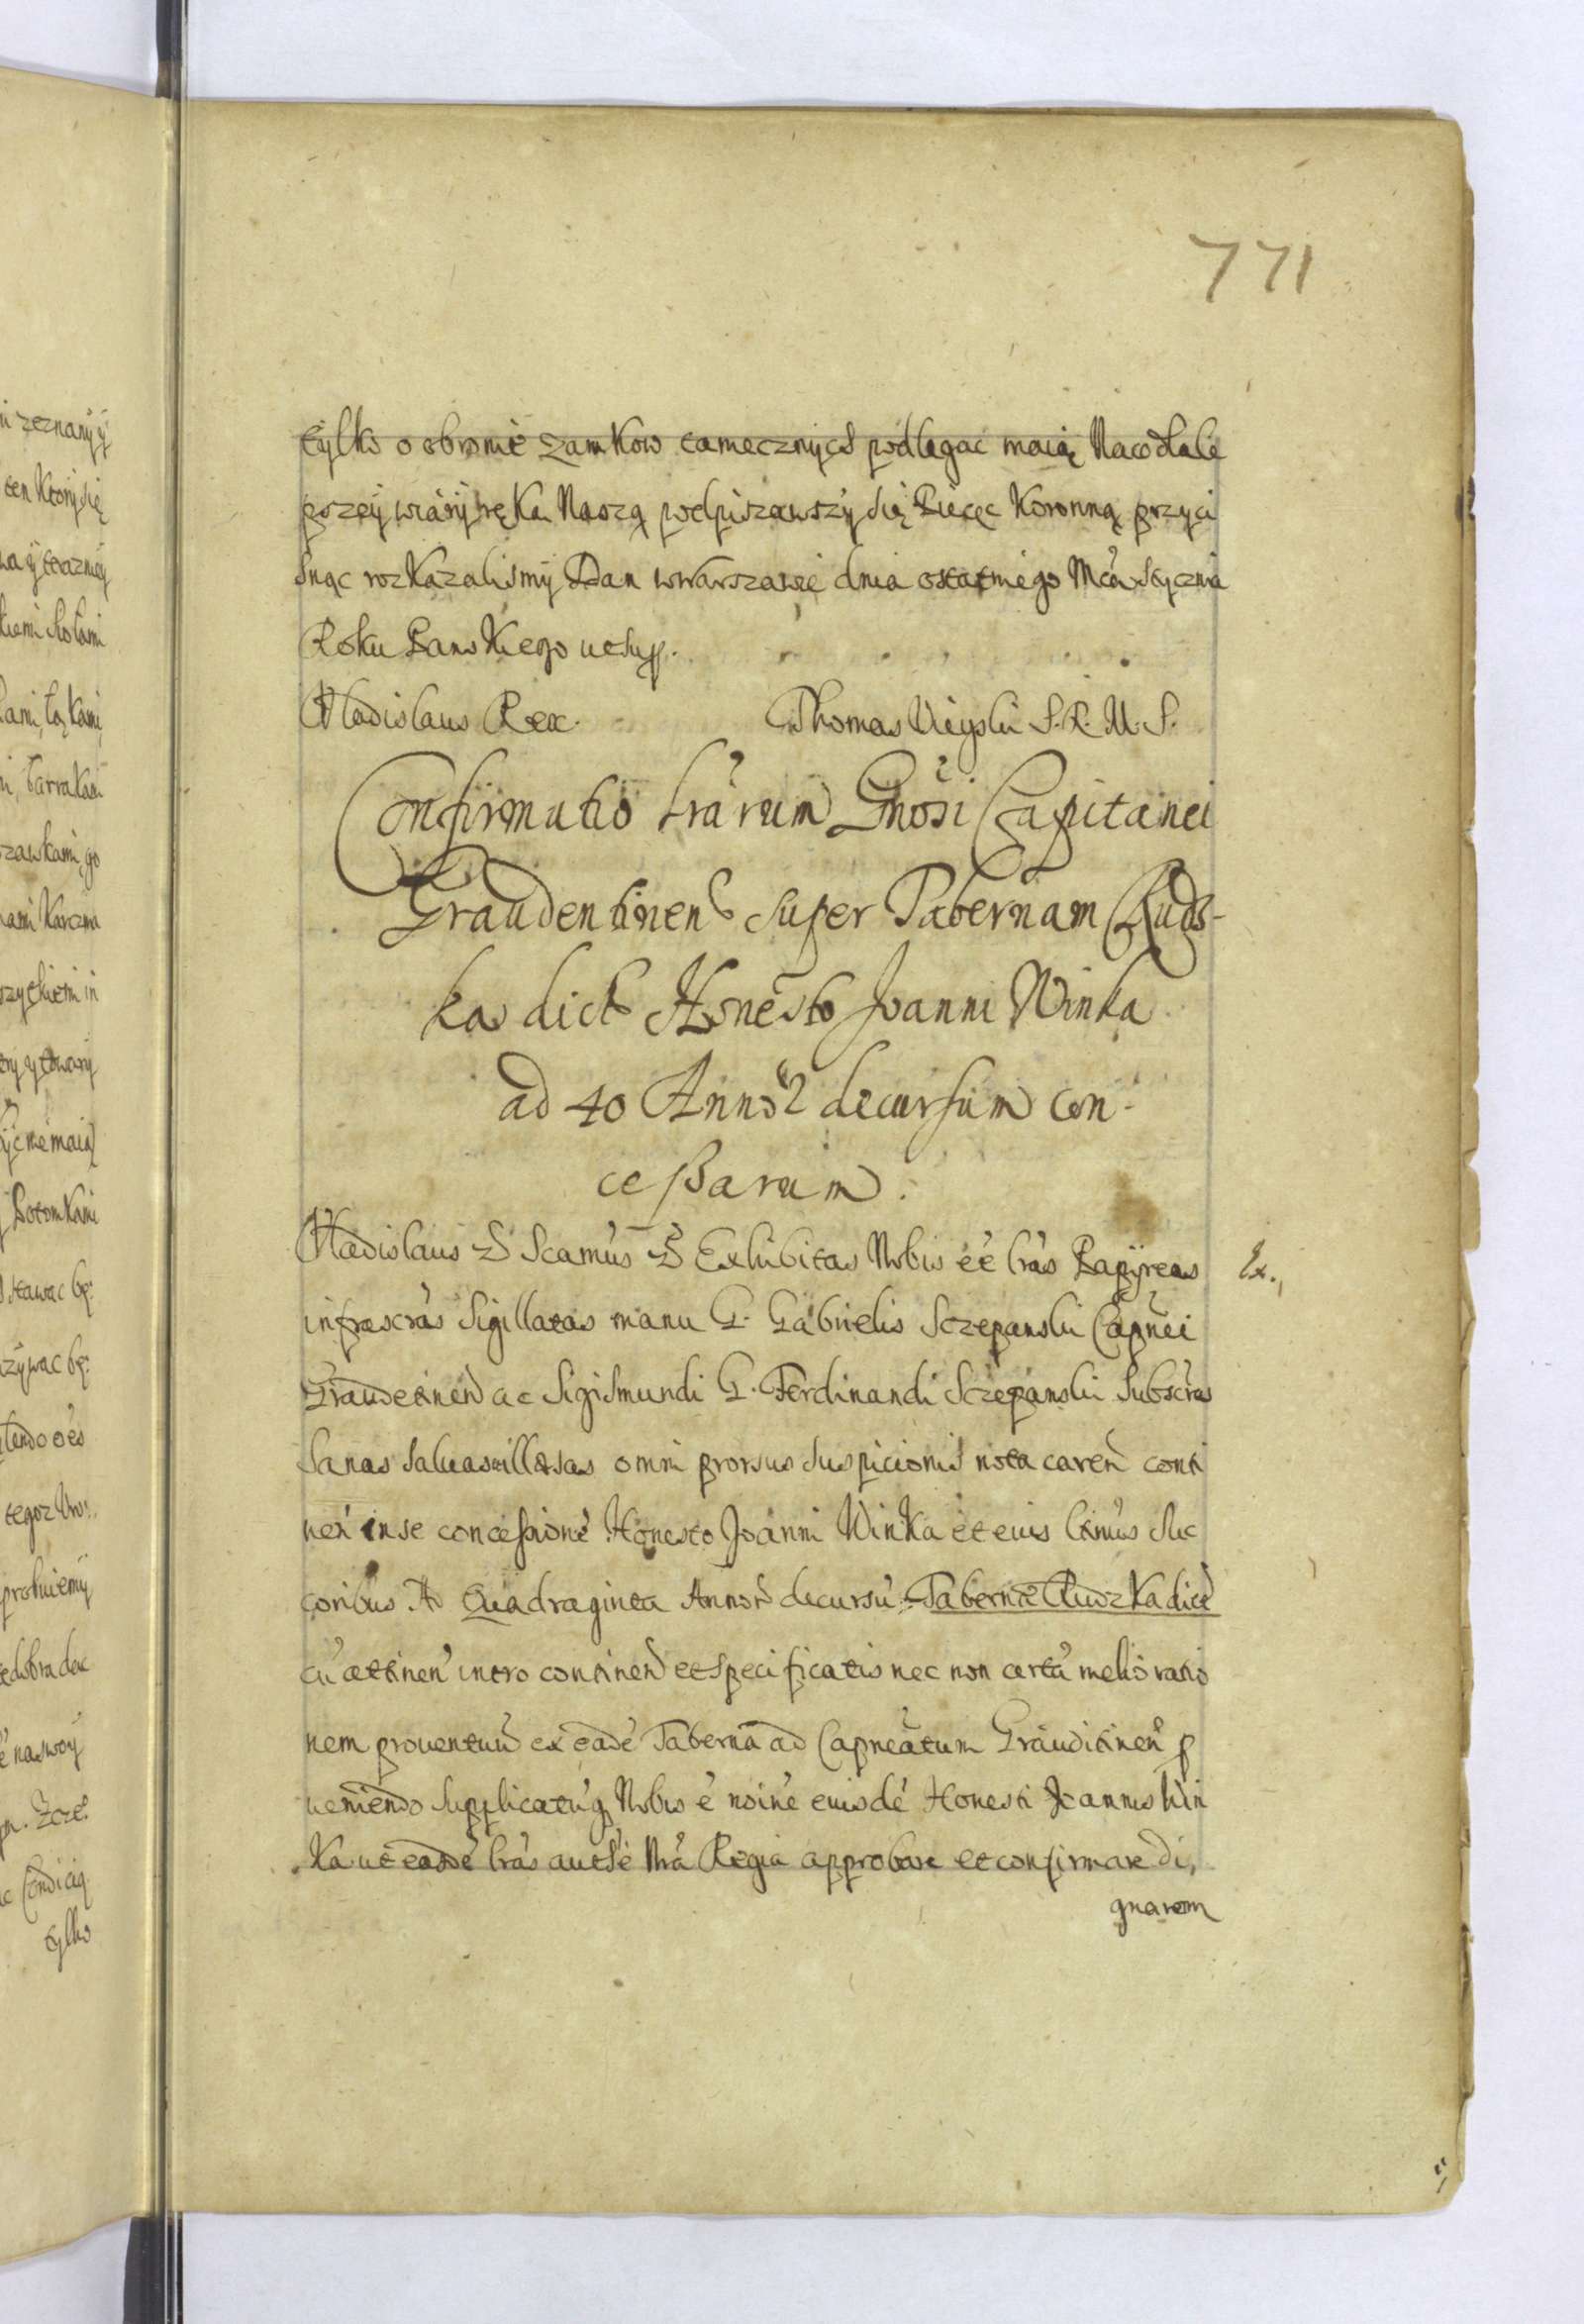 771
tylko o obronie zamkow tamecznych podlegac maią Naco dla le
pszey wiary ręką Naszą podpisawszy się Piecęc Koronną przyci
snąc rozkazalismy Dan wWarszawie dnia ostatniego Mca Stycznia
Roku Panskiego ut sup.
Vladislaus Rex. Thomas Uieyski S. R. M. S.
Confirmatio Lrarum Gnosi Capitanei
Graudentinen super Tabernam Rudz-
ka dict Honesto Joanni Winka
ad 40 Annor decursum con-
cessarum.
Vladislaus & Scamus & Exhibitas Nobis ee lras Papyreas
Ex.
infrascras Sigillatas manu G. Gabrielis Sczepanski Capnei
Graudetinen ac Sigismundi G. Ferdinandi Sczepanski Subscras
Sanas saluas illæsas omni prorsus suspicionis nota caren conti
nen in se concessione Honesto Joanni Winka et eius ltmis suc
coribus A Quadraginta Annor decursu Tabernæ Rudzka dictæ
cu attinen intro continen et specificatis nec non certa melioratio
nem prouentuu ex eade Taberna ad Capneatum Grauditinen p
ueniendo supplicatuq Nobis e noine eiusde Honesti Joannis Win
ka ut easde lras authe Nra Regia approbare et confirmare di,
gnarem
ni zeznany y
ten ktory się
kami, łąkami,
karczma
y towary
yc nie maią
Potomkami
stawac bę:
zywac bę:
tegoz Uro:
na swoy
Condicią
tylko